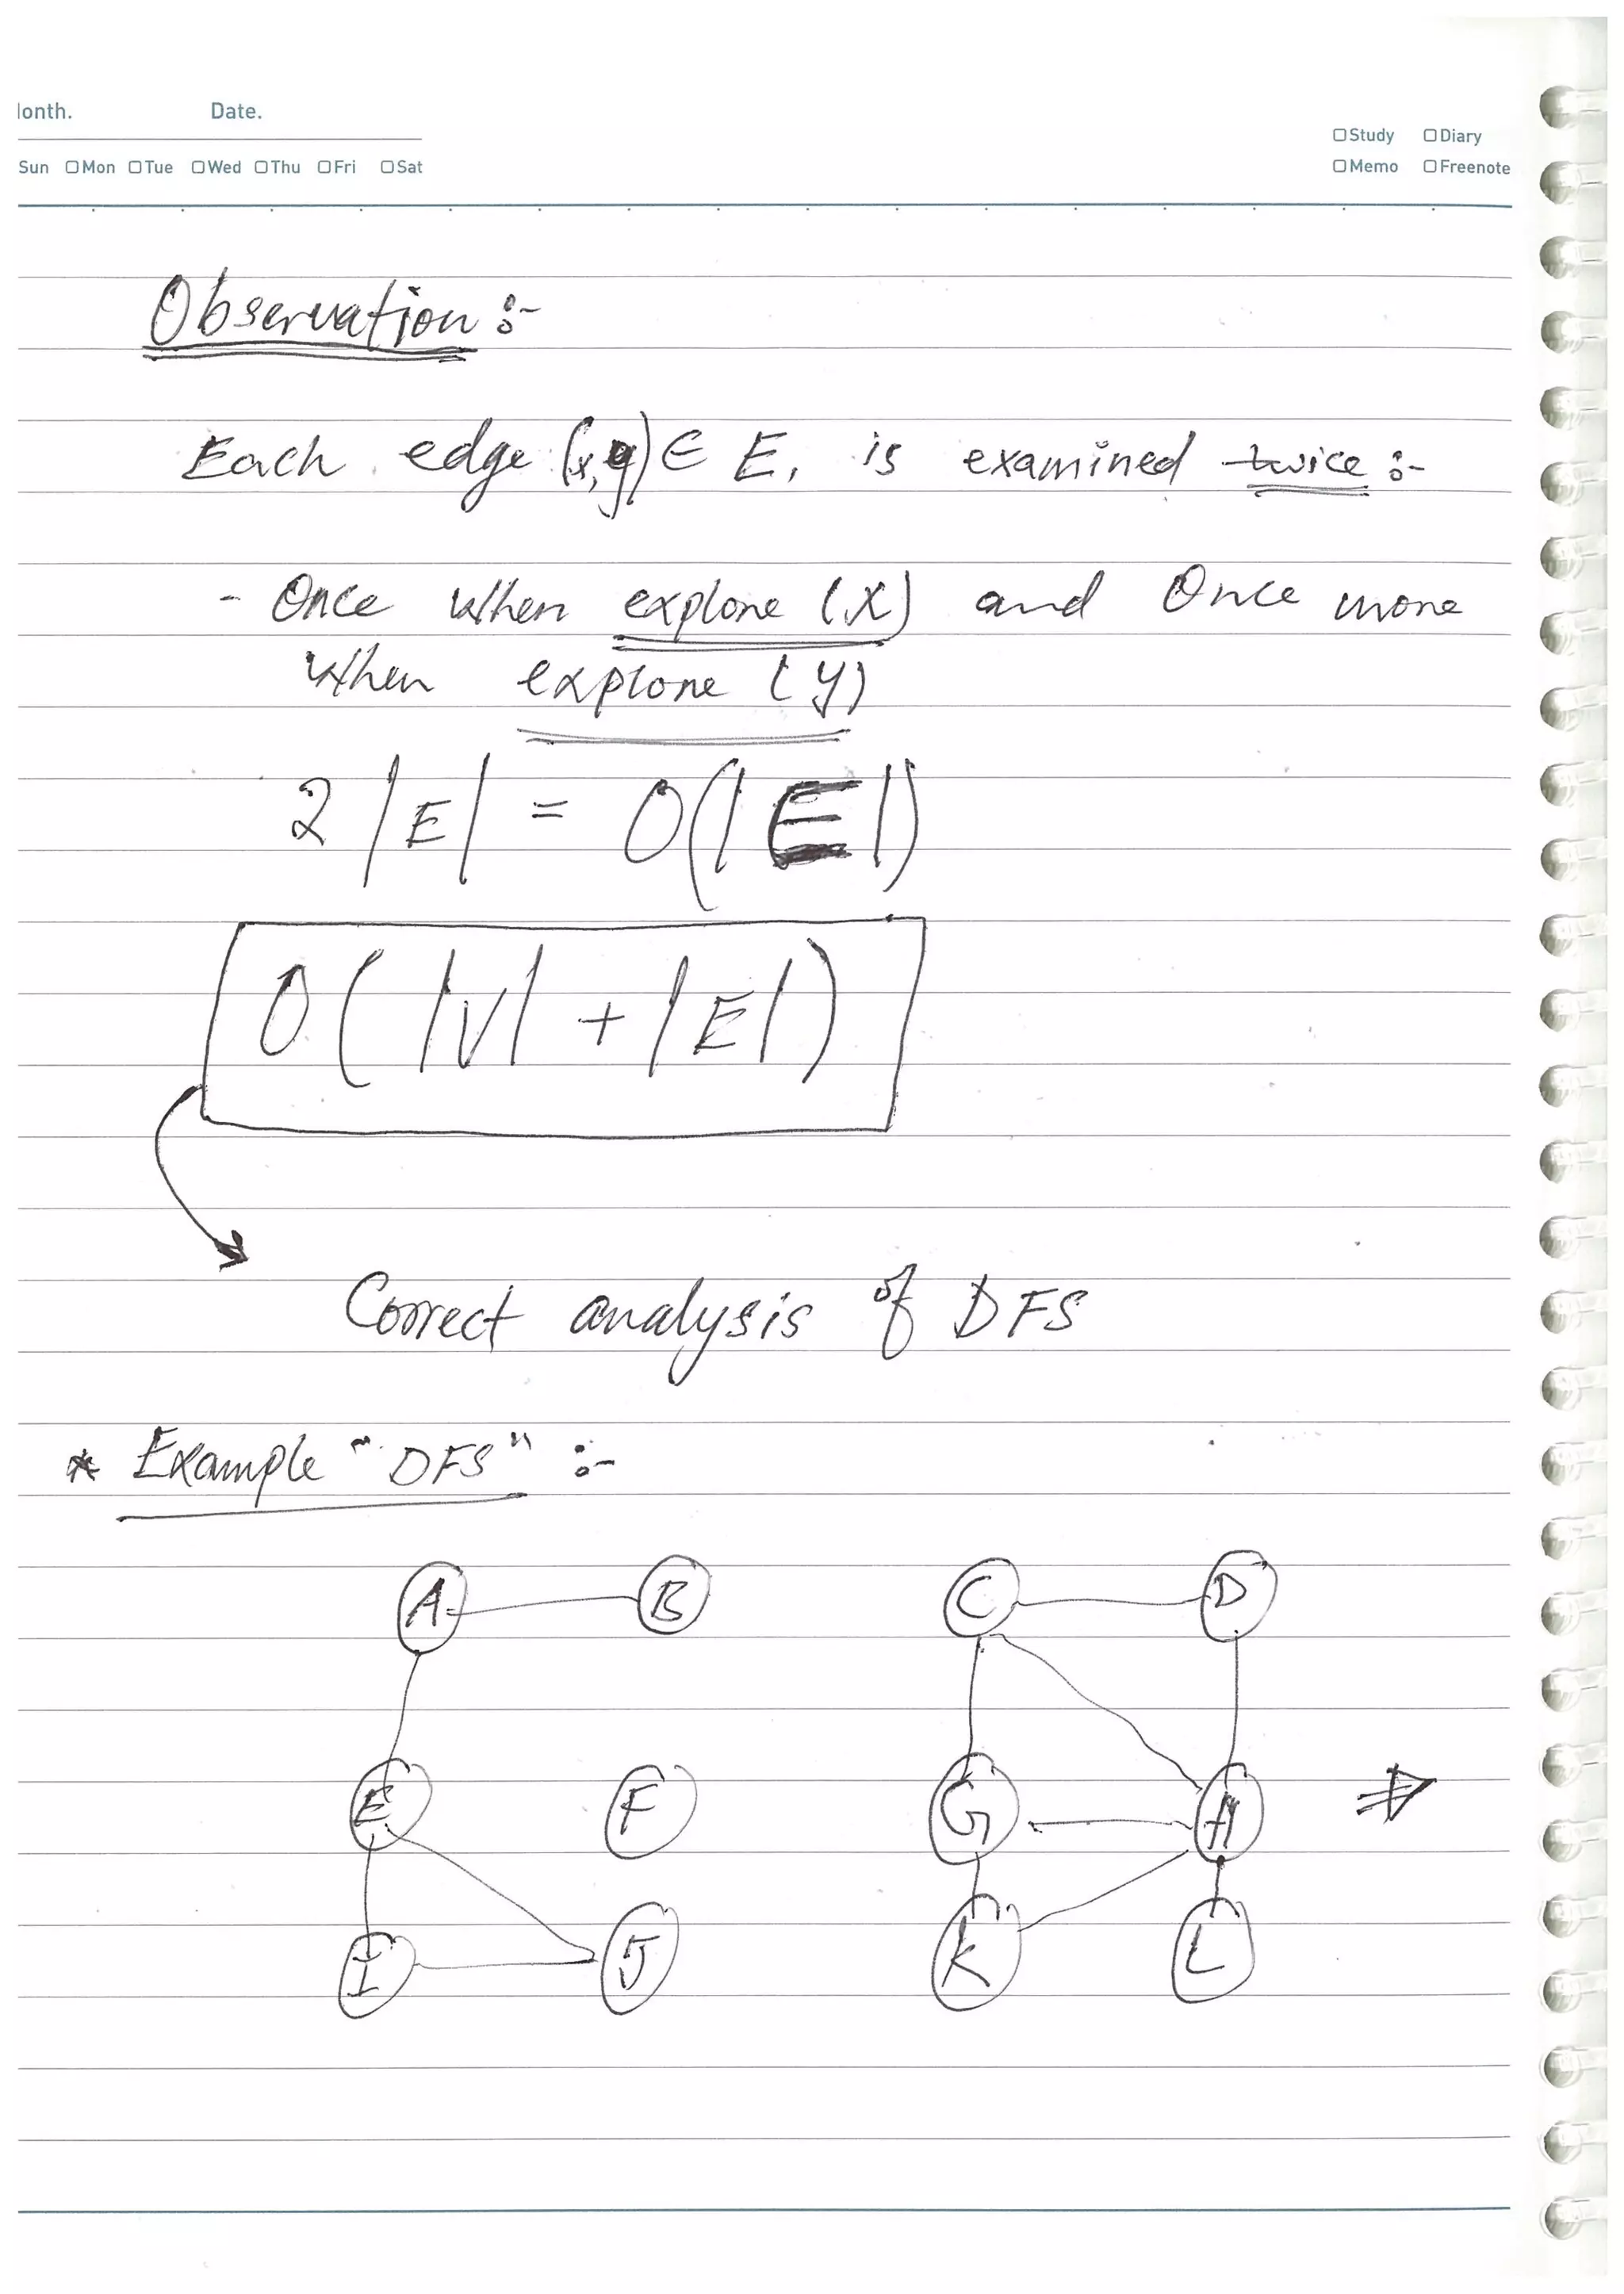 Month. Date.
Sun Mon Tue Wed Thu Fri Sat
Study Diary
Memo Freenote
Observation :-
Each edge (x,y) ∈ E, is examined twice :-
- Once when explore (x) and Once more
when explore (y)
2 |E| = O(|E|)
O( |V| + |E| )
Correct analysis of DFS
* Example "DFS" :-
A B C D
E F G H ⇒
I J K L